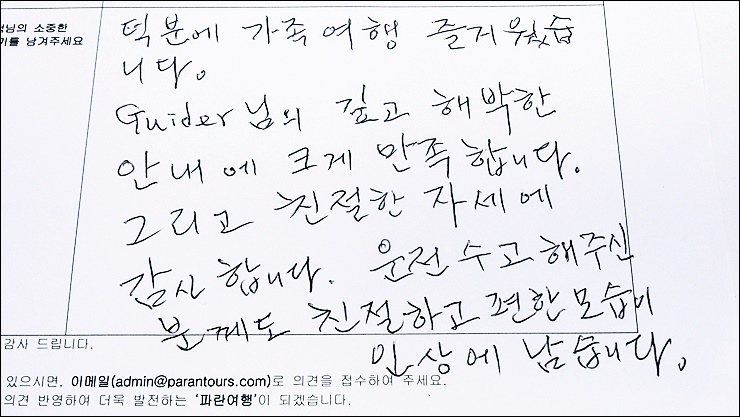 님의 소중한
기를 남겨주세요
덕분에 가족여행 즐거웠습
니다.
Guider님의 깊고 해박한
안내에 크게 만족합니다.
그리고 친절한 자세에
감사합니다. 운전 수고해주신
분께도 친절하고 편한모습이
인상에 남습니다.
감사 드립니다.
있으시면, 이메일(admin@parantours.com)로 의견을 접수하여 주세요.
의견 반영하여 더욱 발전하는 '파란여행'이 되겠습니다.